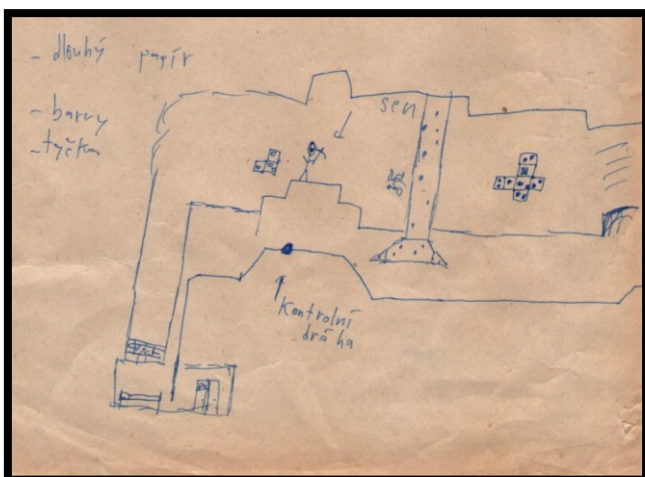 - dlouhý papír
- barvy
- tyčka
sen
Kontrolní
dráha